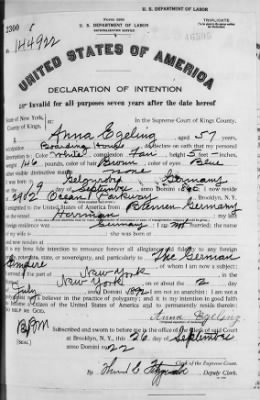 Form 2203
U. S. DEPARTMENT OF LABOR
U. S. DEPARTMENT OF LABOR
TRIPLICATE
2300
No 144922
UNITED STATES OF AMERICA
DECLARATION OF INTENTION
Invalid for all purposes seven years after the date hereof
State of New York,
County of Kings,
In the Supreme Court of Kings County.
Anna Egeling, aged 57 years,
occupation Boarding House, do declare on oath that my personal
description is: Color White, complexion Fair, height 5 feet - inches,
weight 149 pounds, color of hair Brown, color of eyes Blue
other visible distinctive marks none
Germany
on the 29 day of September, anno Domini; I now reside
at 2902 Ocean Parkway, Brooklyn, N. Y.
I emigrated to the United States of America from Bremen Germany
; my last
foreign residence was Germany; I am not married; the name
of my was born at
and now resides at
It is my bona fide intention to renounce forever all allegiance and fidelity to any foreign
prince, potentate, state, or sovereignty, and particularly to The German
Empire, of whom I am now a subject;
I arrived at the port of New York, in the
State of New York, on or about the 2 day
of July, anno Domini 1892; I am not an anarchist; I am not a
polygamist nor a believer in the practice of polygamy; and it is my intention in good faith
to become a citizen of the United States of America and to permanently reside therein:
SO HELP ME GOD.
Anna Egeling
Subscribed and sworn to before me in the office of the Clerk of said Court
[SEAL.]
at Brooklyn, N. Y., this 26 day of September
anno Domini 1922
Clerk of the Supreme Court.
By Deputy Clerk.